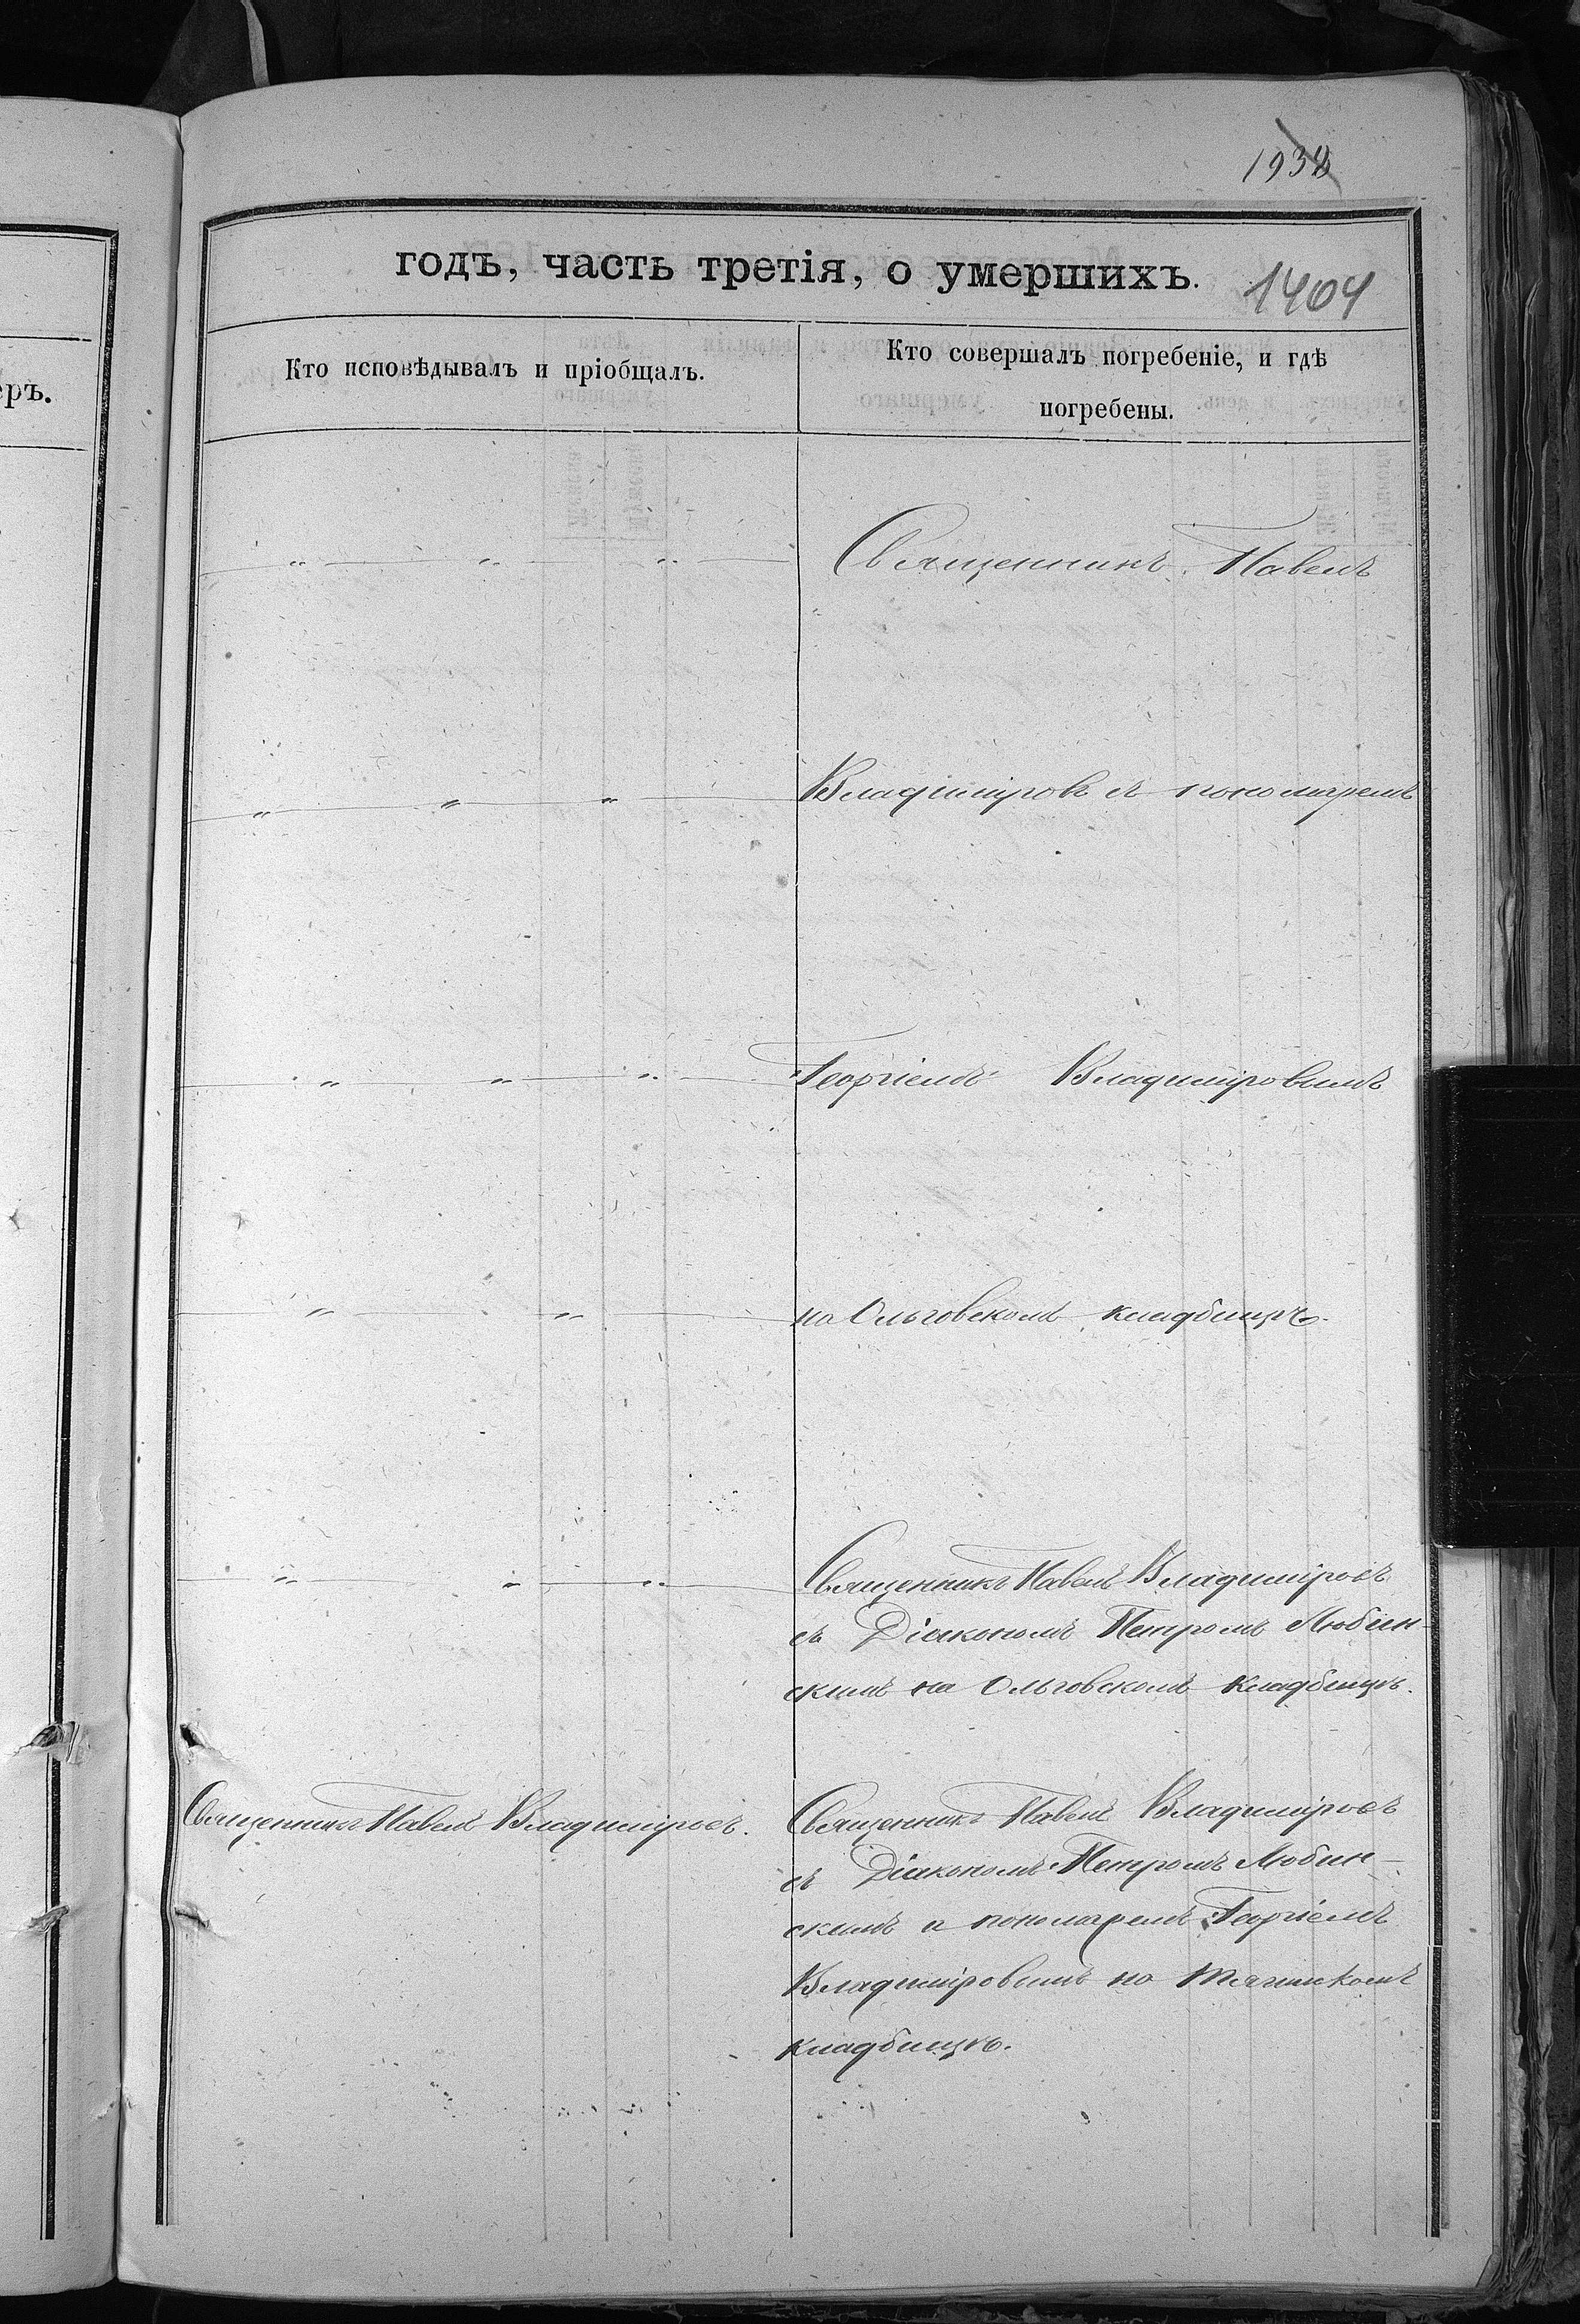 1938
годъ, часть третія, о умершихъ.
1404
еръ.
Кто исповѣдывалъ и пріобщалъ.
Кто совершалъ погребеніе, и гдѣ
погребены.
Священникъ Павелъ
Владиміровъ съ пономаремъ
Георгіемъ Владиміровымъ
на Ольговскомъ кладбищѣ.
Священникъ Павелъ Владиміровъ
съ Діакономъ Петромъ Любин-
скимъ на Ольговскомъ кладбищѣ.
Священникъ Павелъ Владиміровъ.
Священникъ Павелъ Владиміровъ
съ Діакономъ Петромъ Любин-
скимъ и пономаремъ Георгіемъ
Владиміровымъ на
кладбищѣ.